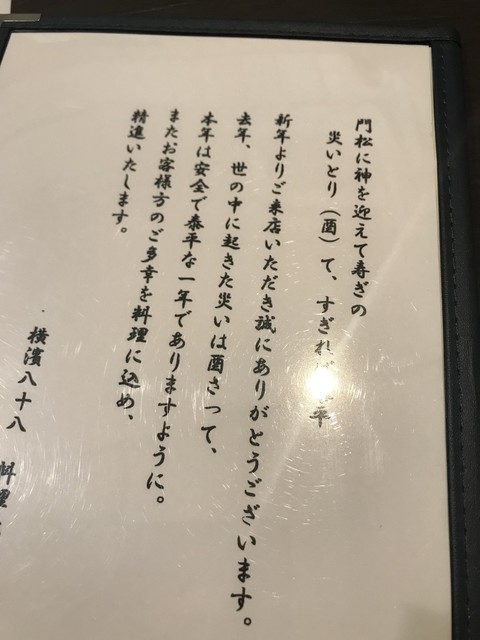 門松に神を迎えて寿ぎの
災いとり(酉)て、すぎれ 平
新年よりご来店いただき誠にありがとうございます。
去年、世の中に起きた災いは酉さって、
本年は安全で泰平な一年でありますように。
またお客様方のご多幸を料理に込め、
精進いたします。
横濱八十八 料理